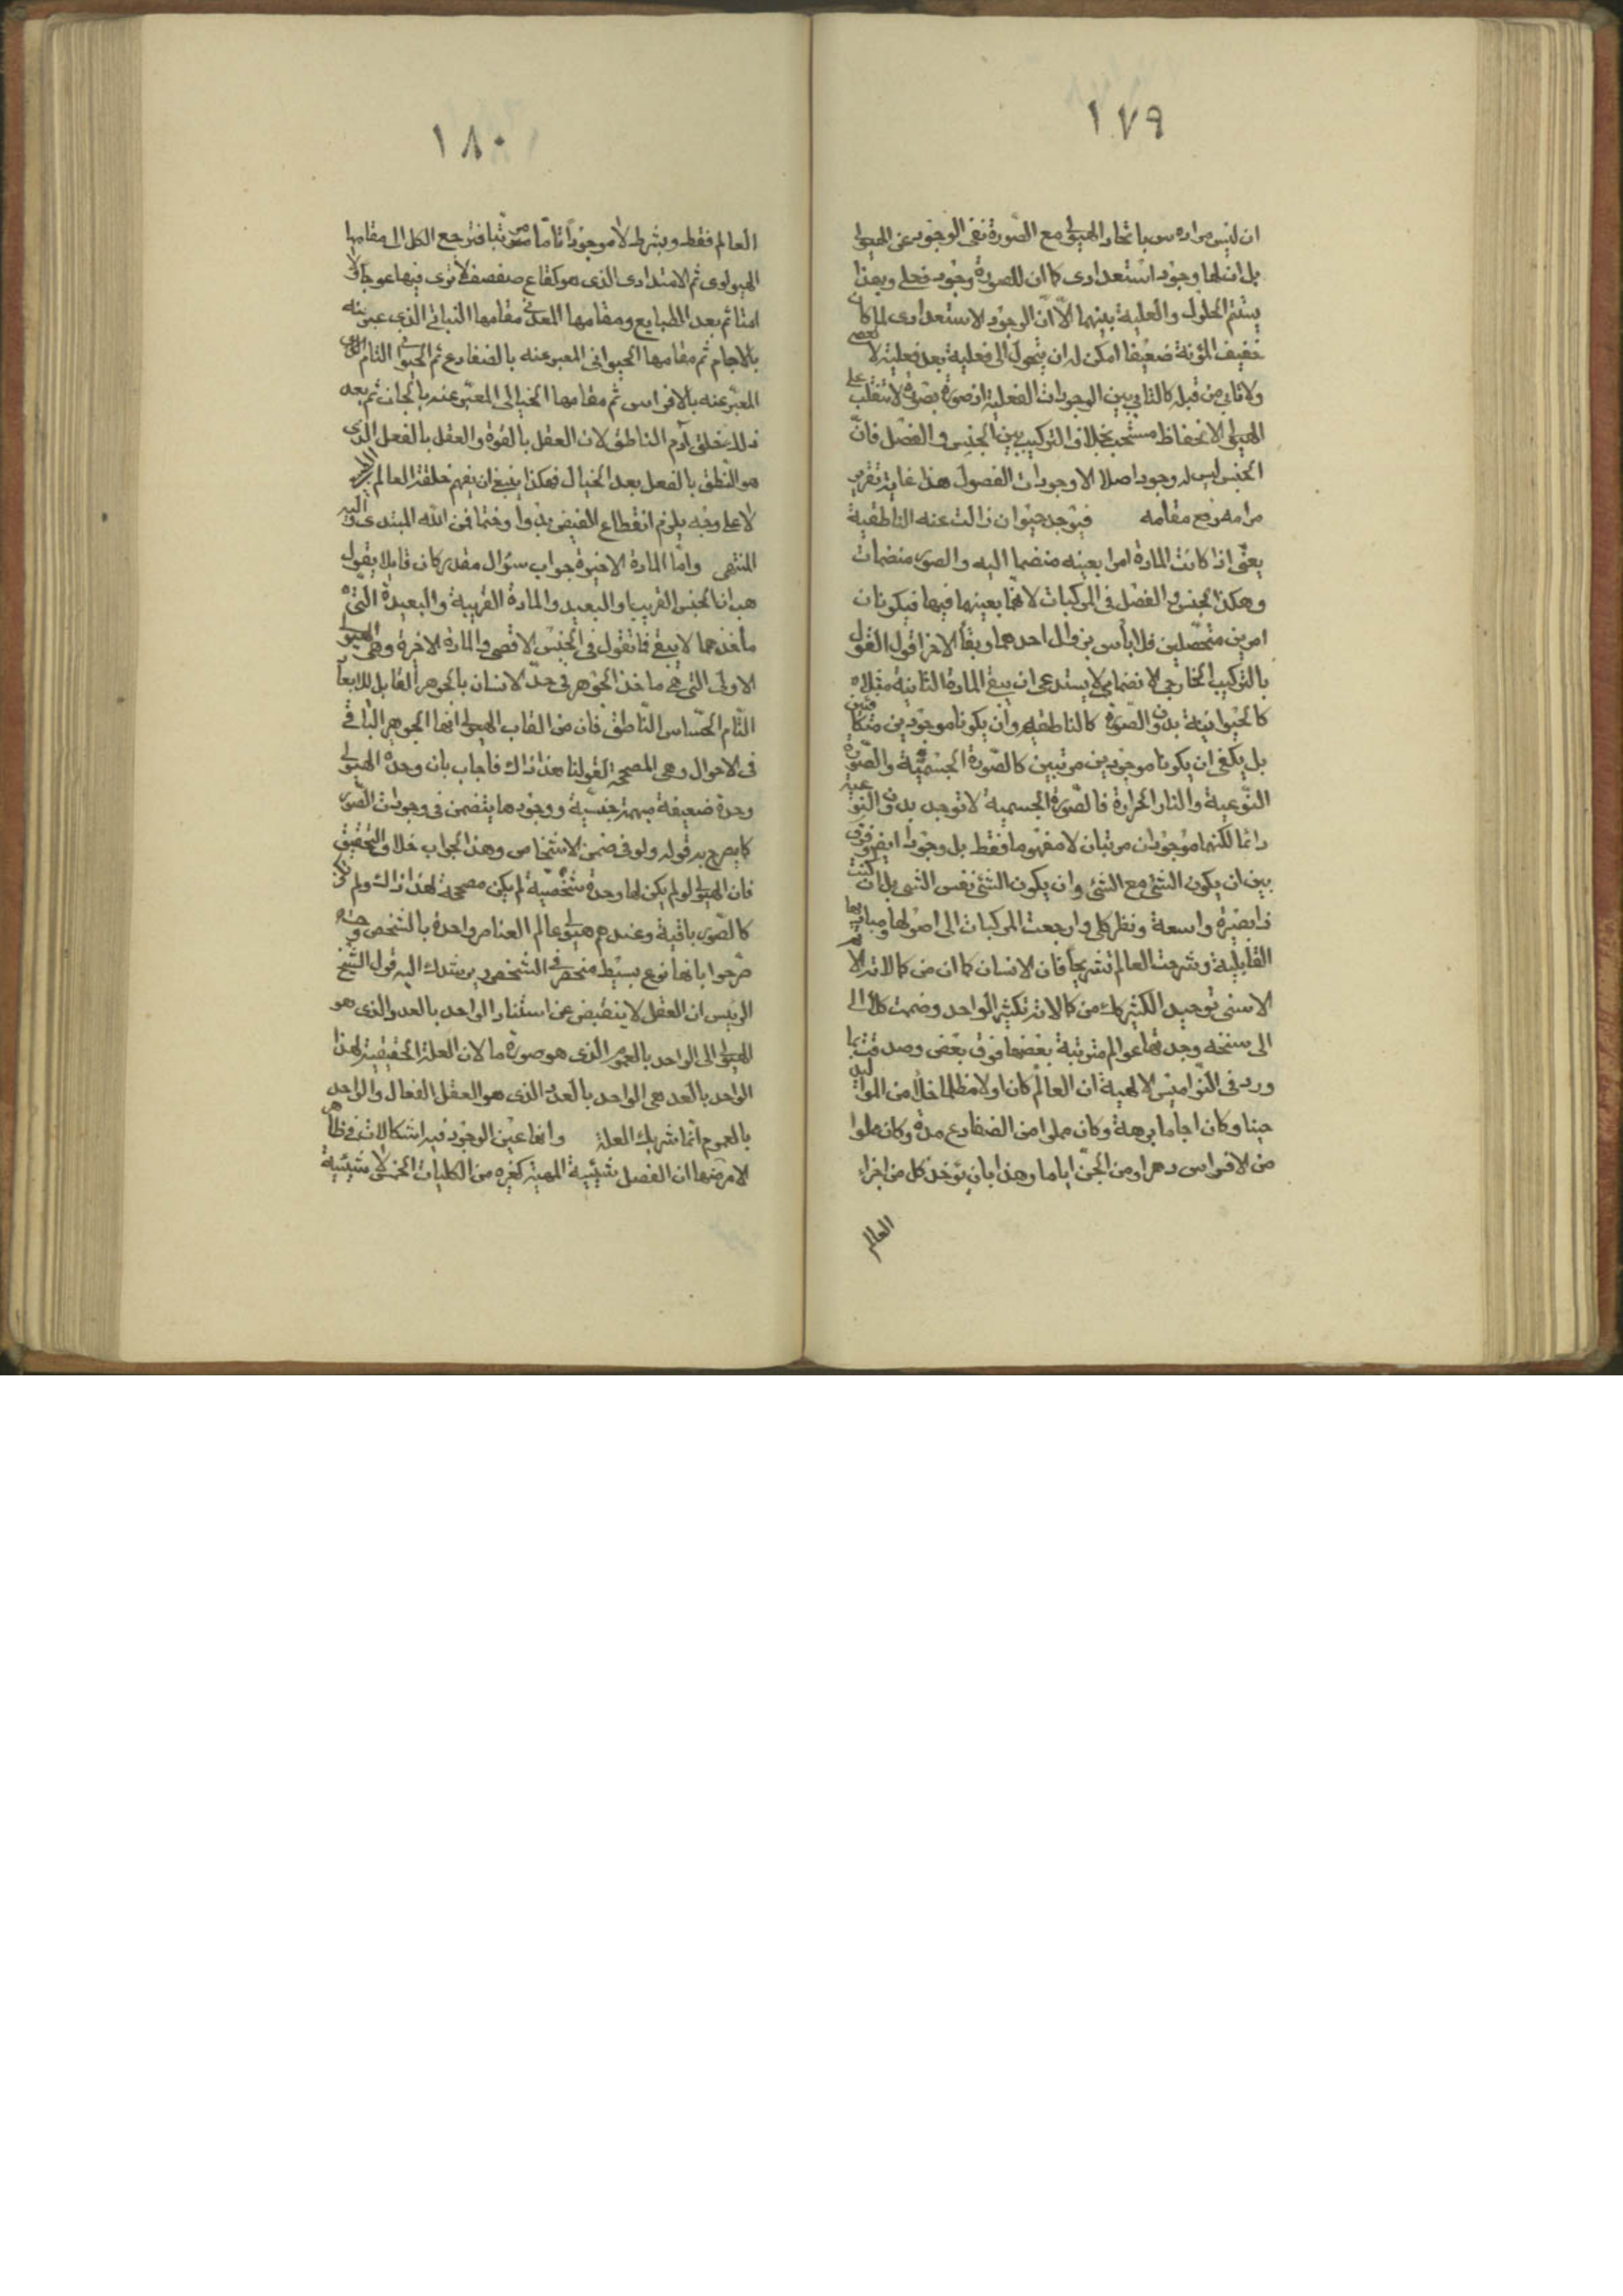 ١٧٩
ان ليس مراده س باتحاد الهيولى مع الصّورة نفى الوجود عن الهيولى
بل ان لها وجود استعدادى كما ان للصورة وجود فعلى وبهذا
يستتم الحلول والعلية بينهما الّا انّ الوجود الاستعدادى لما كان
خفيف المؤنة ضعيفا امكن له ان يتحول الى فعلية بعد فعلية لا
ولا تابى من قبله كالتابى بين الوجودات الفعلية اذ صورة بصورة لا تنقلب على
الهيولى الانحفاظ منسحب بخلاف التركيب بين الجنس و الفصل فانّ
الجنس ليس له وجود اصلا الا وجودات الفصول هذا غاية تقرير
مرامه رفع مقامه فيوجد حيوان زالت عنه الناطقية
يعنى اذا كانت المادة امرا بعينه منضما اليه والصور منضمات
وهكذا الجنس و الفصل فى المركبات لانهما بعينهما فيها فيكونان
امرين متحصّلين فلا بأس بزوال احدهما وبقاء الاخر اقول القول
بالتركيب الخارجى الانضمامى لا يستدعى ان يبقى المادة الثانية مثلا
كالحيوانية بدون الصورة كالناطقية وان يكونا موجودين متكافئين
بل يكفى ان يكونا موجودين مرتبين كالصّورة الجسميّة والصّورة
النّوعية والنار الحرارة فالصّورة الجسمية لا توجد بدون النوعية
دائما لكنهما موجودان مرتبان لا مفهوما فقط بل وجودا ايضا وفرق
بين ان يكون الشئ مع الشئ وان يكون الشئ نفس الشئ بل ان كنت
ذا بصيرة واسعة ونظر كلى وارجعت المركبات الى اصولها ومباديها
القابلية وشرحت العالم تشريحا فان الانسان كما ان من كمالاته الاتم
الاسنى توحيد الكثير كذلك من كمالاته تكثير الواحد وضمت كل الى
الى سنخه وجدتها عوالم مترتبة بعضها فوق بعض وصدقت بما
ورد فى النّواميس الالهية ان العالم كان اولا مظلما خلأ من المواليد
حينا وكان اجاما برهة وكان مملوا من الضفادع مدة وكان مملوا
من الافراس دهرا ومن الجنّ اياما وهذا بان تؤخذ كل من اجزاء
العالم
١٨٠
العالم فقط وبشرط لا موجودا تامّا مرتبا فترجع الكل الى مقامها
الهيولوى ثم الامتدادى الذى هو كقاع صفصف لا ترى فيها عوجا ولا
امتا ثم بعد الطبايع ومقامها المعدنى مقامها النباتى الذى عبر عنه
بالاجام ثم مقامها الحيوانى المعبر عنه بالضفادع ثم الحيوانى التام
المعبّر عنه بالافراس ثم مقامها الخيالى المعبّر عنه بالجان ثم بعد
ذلك خلق آدم الناطق لان العقل بالقوة والعقل بالفعل الذى
هو النّطق بالفعل بعد الخيال فهكذا ينبغى ان يفهم خلقة العالم
لا على وجه يلزم انقطاع الفيض بدوا وختما فمن اللّه المبتدى و اليه
المنتهى وامّا المادة الاخيرة جواب سؤال مقدر كان قايلا يقول
هب ان الجنس القريب او البعيد والمادة القريبة والبعيدة التى
مأخذهما لا يبقى فما تقول فى الجنس الاقصى والمادة الاخيرة وهى الهيولى
الاولى التى هى مأخذ الجوهر فى حدّ الانسان بالجوهر القابل للابعاد
النّام الحسّاس النّاطق فان من القاب الهيولى انها الجوهر الباقى
فى الاحوال وهى المصححة لقولنا هذا ذاك فاجاب بان وحدة الهيولى
وحدة ضعيفة مبهمة جنسيّة ووجودها يتضمن فى وجودات الصّور
كما يصرح به قوله ولو فى ضمن الاشخاص وهذا الجواب خلاف التحقيق
فان الهيولى لو لم يكن لها وحدة شخصيّة لم يكن مصححة لهذا ذاك ولم تكن
كالصّور باقية وعندهم هيولى عالم العناصر واحدة بالشخص و
صّرحوا بانها نوع بسيط منحصر فى الشخص ويرشدك اليه قول الشيخ
الرئيس ان العقل لا ينقبض عن استناد الواحد بالعدد الذى هو
الهيولى الى الواحد بالعموم الذى هو صورة ما لان العلة الحقيقية لهذا
الواحد بالعدد هى الواحد بالعدد الذى هو العقل الفعال والواحد
بالعموم انما شريك العلة وانها عين الوجود فيه اشكالات فى ظاهر
الامر منها ان الفصل شيئية المهية كغيره من الكليات الخمس لا شيئية